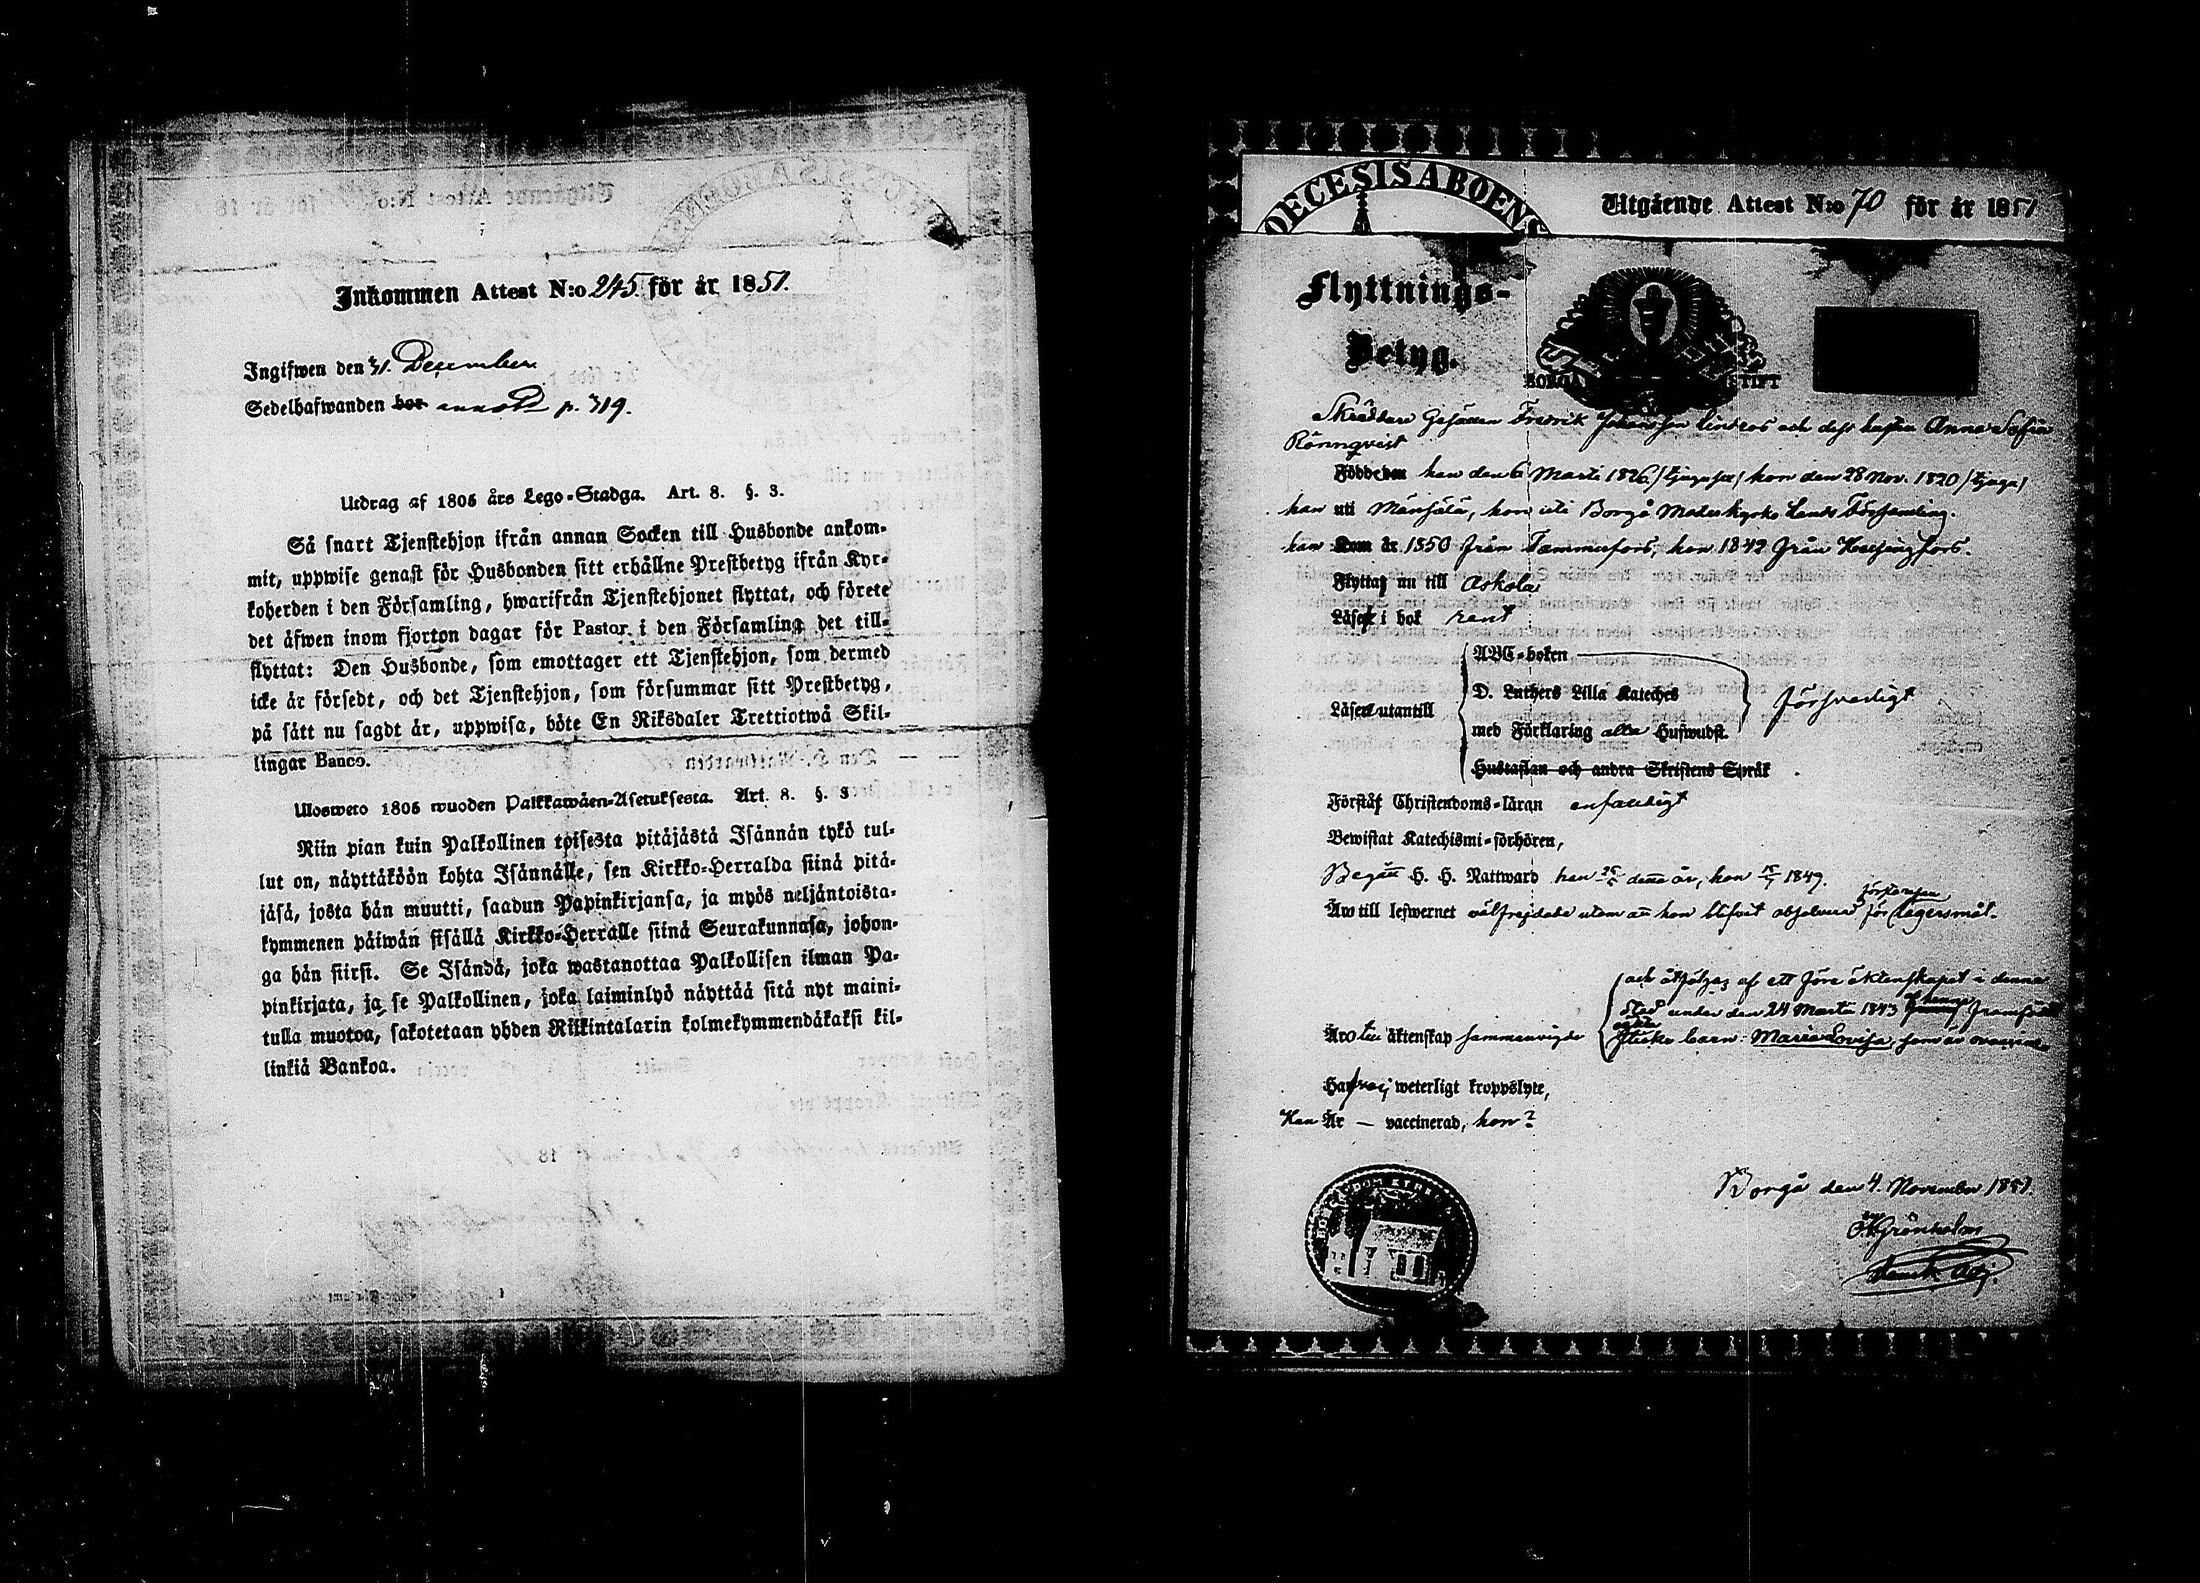 Inkommen Attest N:o 245. för år 1851.
Ingifwen den 31. December
Sedelhafwanden bor annot. p. 319.
Utdrag af 1805 års Lego-Stadga. Art. 8. §. 3.
Så snart Tjenstehjon ifrån annan Socken till Husbonde ankom-
mit, uppwise genast för Husbonden sitt erhållne Prestbetyg ifrån Kyr-
koherden i den Församling, hwarifrån Tjenstehjonet flyttat, och förete
det äfwen inom fjorton dagar för Pastor i den Församling det till-
flyttat: Den Husbonde, som emottager ett Tjenstehjon, som dermed
icke är försedt, och det Tjenstehjon, som försummar sitt Prestbetyg,
på sätt nu sagdt är, uppwisa, böte En Riksdaler Trettiotwå Skil-
lingar Banco.
Ulosweto 1805 wuoden Palkkawäen-Asetuksesta. Art. 8. §. 3
Niin pian kuin Palkollinen toisesta pitäjästä Isännän tykö tul-
lut on, näyttäköön kohta Isännälle, sen Kirkko-Herralda siinä pitä-
jäsä, josta hän muutti, saadun Papinkirjansa, ja myös neljäntoista-
kymmenen päiwän sisällä Kirkko-Herralle siinä Seurakunnasa, johon-
ga hän siirsi. Se Isändä, joka wastanottaa Palkollisen ilman Pa-
pinkirjata, ja se Palkollinen, joka laiminlyö näyttää sitä nyt maini-
tulla muotoa, sakotetaan yhden Riikintalarin kolmekymmendäkaksi kil-
linkiä Bankoa.
OECESIS ABOENS
Utgående Attest N:o 70 för år 1851
Flyttnings-
Betyg.
BORGÅ STIFT
Skräddare Gesällen Fredrik Johansson Lindroos och dess hustru Anna Sofia
Rönnqvist
Född den han den 6 Marti 1826 /tjugusex/ hon den 28 Nov. 1820 /tjugu/
han uti Mänsälä, hon uti Borgå Moderkyrko Lands Församling.
han Kom år 1850 från Tammerfors, hon 1842 från Helsingfors.
Flytta nu till Askola
Läser i bok rent
ABC-boken
Läser utantill D. Luthers Lilla Kateches
med Förklaring alla Hufwudst. försvarligt
Hustaflan och andra Skriftens Språk
Förstå Christendoms-läran enfaldigt
Bewistat Katechismi-förhören,
Begått H. H. Nattward han denna år, hon 1849.
Äro till lefwernet välfrejdade utom att hon blifvit absolverad för första resan lägersmål.
och åtföljas af ett före äktenskapet i denna
stad under den 24 Martii 1843
Äro till äktenskap sammanvigde
barn: Maria Lovisa, som är
Ha weterligt kroppslyte,
Han Är — vaccinerad, hon?
Borgå den 4. November 1851.
Grönholm
Adj.